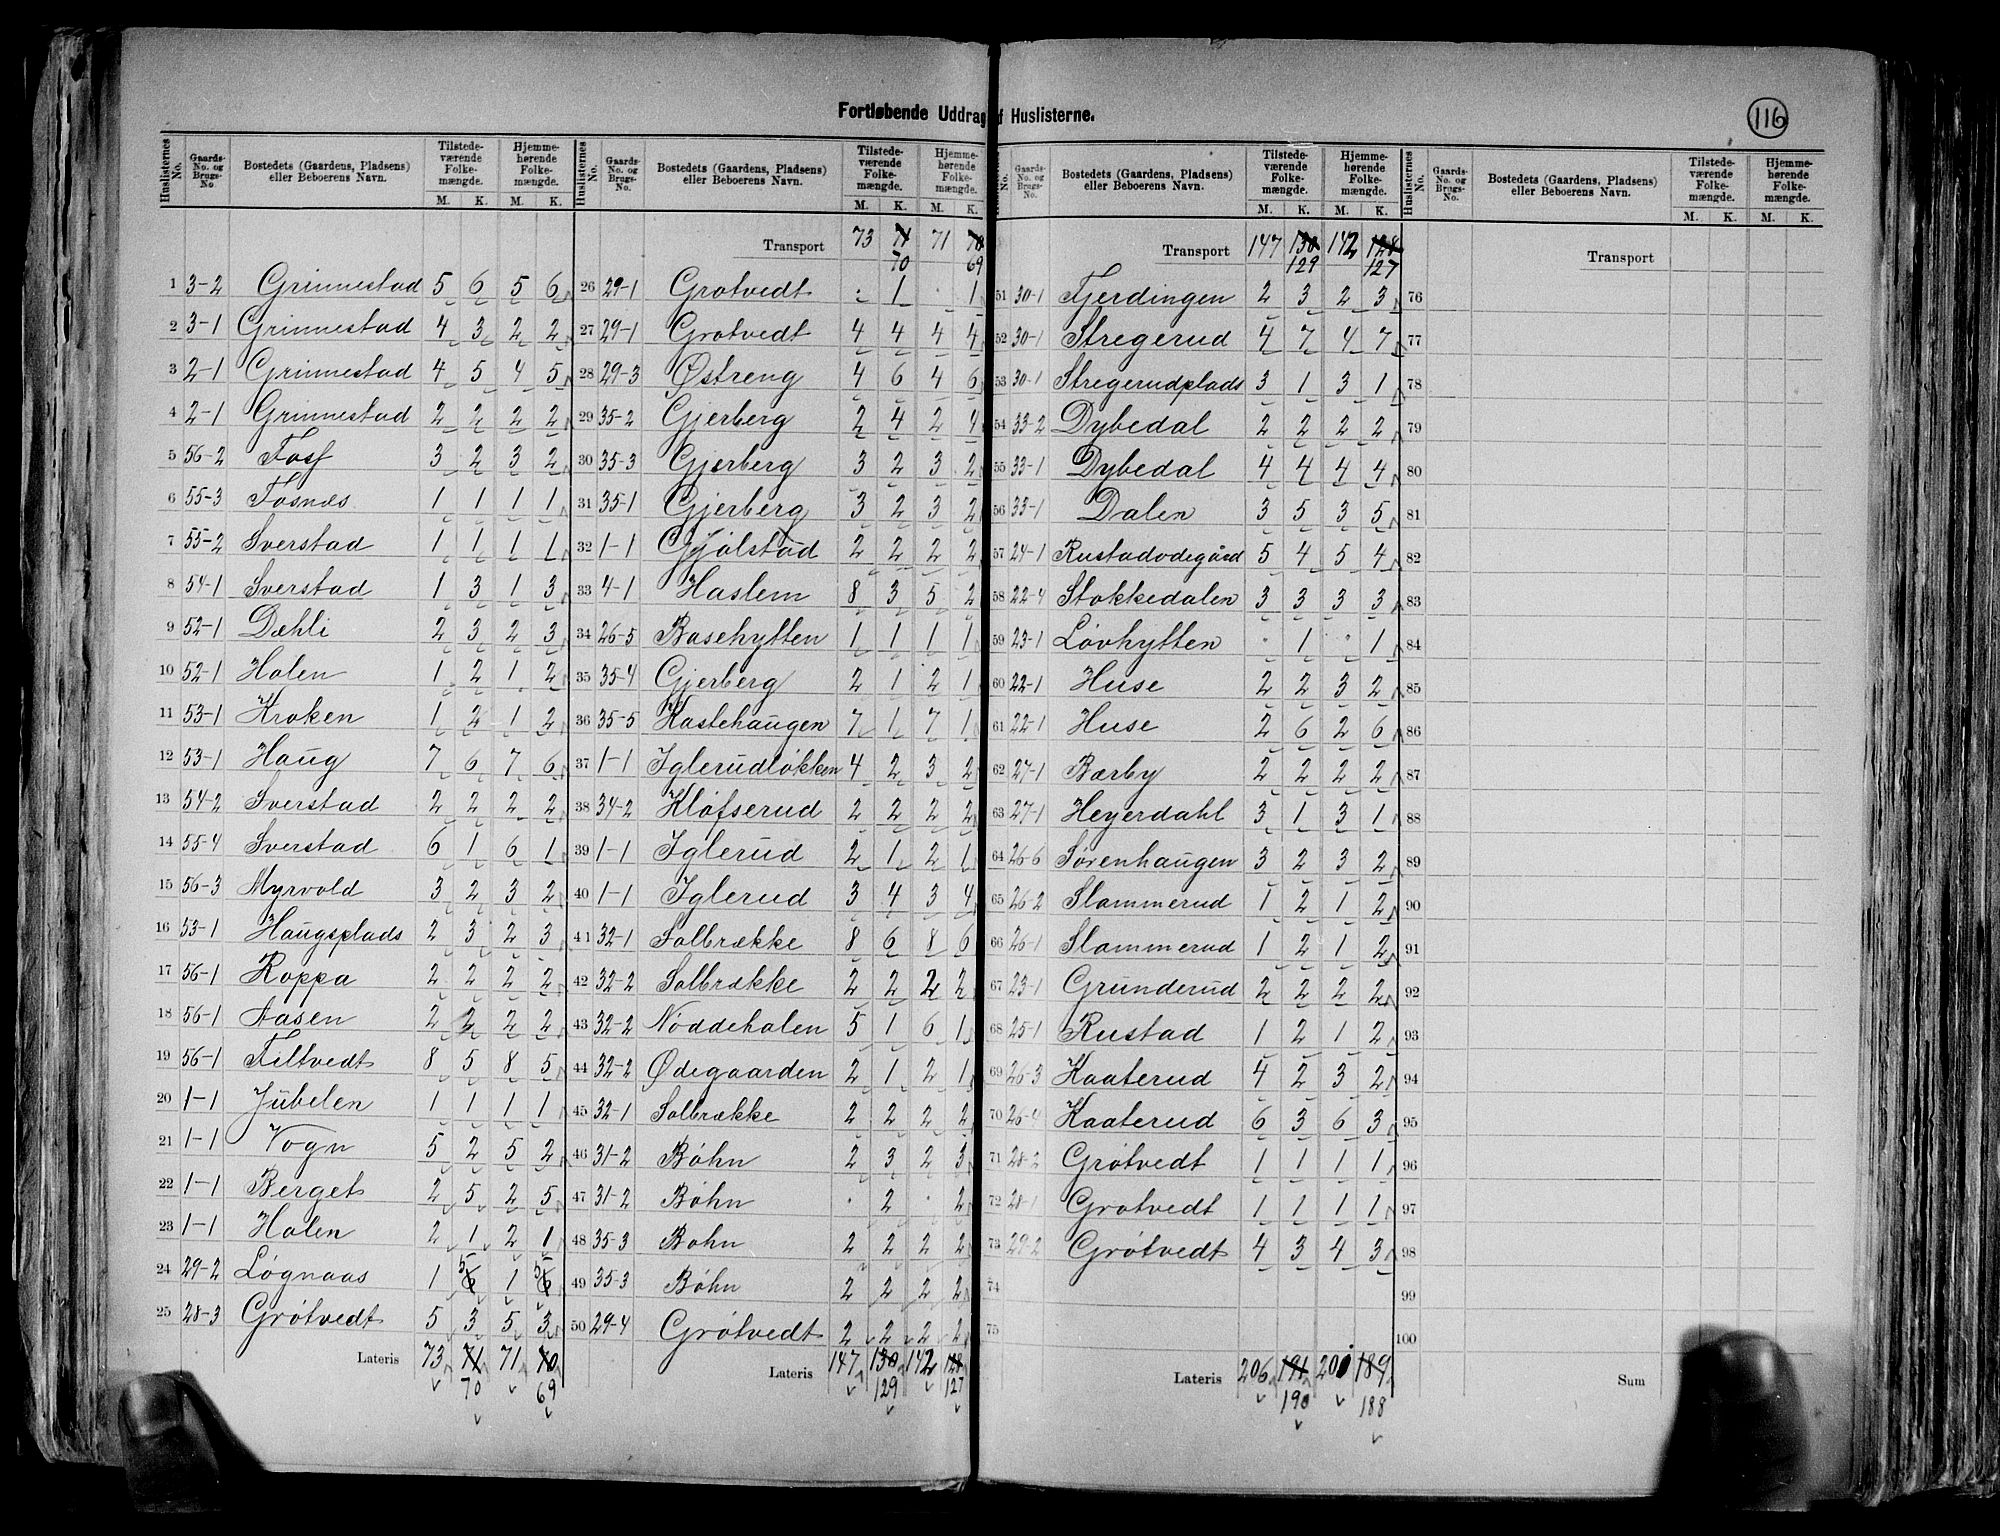 Fortløbende Uddrag af Huslisterne.
116
Huslisternes No. Gaards-No. og Brugs-No Bostedets (Gaardens, Pladsens) eller Beboerens Navn. Tilstedeværende Folkemængde. M. K. Hjemmehørende Folkemængde. M. K.
1 3-2 Grinnestad 5 6 5 6
2 3-1 Grinnestad 4 3 2 2
3 2-1 Grinnestad 4 5 4 5
4 2-1 Grinnestad 2 2 2 2
5 56-2 Fosf 3 2 3 2
6 55-3 Fosnæs 1 1 1 1
7 55-2 Sverstad 1 1 1 1
8 54-1 Sverstad 1 3 1 3
9 52-1 Dæhli 2 3 2 3
10 52-1 Holen 1 2 1 2
11 53-1 Kroken 1 2 1 2
12 53-1 Haug 7 6 7 6
13 54-2 Sverstad 2 2 2 2
14 55-4 Sverstad 6 1 6 1
15 56-3 Myrvold 3 2 3 2
16 53-1 Haugsplads 2 3 2 3
17 56-1 Roppa 2 2 2 2
18 56-1 Aasen 2 2 2 2
19 56-1 Filtvedt 8 5 8 5
20 1-1 Jubelen 1 1 1 1
21 1-1 Vogn 5 2 5 2
22 1-1 Berget 2 5 2 5
23 1-1 Holen 2 1 2 1
24 29-2 Løgnaas 1 5 6 1 5 6
25 28-3 Grøtvedt 5 3 5 3
Lateris 73 71 71 70
70 69
Huslisternes No. Gaards-No. og Brugs-No. Bostedets (Gaardens, Pladsens) eller Beboerens Navn. Tilstedeværende Folkemængde. M. K. Hjemmehørende Folkemængde. M. K.
Transport 73 71 71 70
70 69
26 29-1 Grotvedt . 1 . 1
27 29-1 Grotvedt 4 4 4 4
28 29-3 Østreng 4 6 4 6
29 35-2 Gjerberg 2 4 2 4
30 35-3 Gjerberg 3 2 3 2
31 35-1 Gjerberg 3 2 3 2
32 1-1 Gjølstad 2 2 2 2
33 4-1 Haslem 8 3 5 2
34 26-5 Basehytten 1 1 1 1
35 35-4 Gjerberg 2 1 2 1
36 35-5 Haslehaugen 7 1 7 1
37 1-1 Iglerudløkken 4 2 3 2
38 34-2 Kløfserud 2 2 2 2
39 1-1 Iglerud 2 1 2 1
40 1-1 Iglerud 3 4 3 4
41 32-1 Solbrække 8 6 8 6
42 32-2 Solbrække 2 2 2 2
43 32-2 Nøddeholen 5 1 6 1
44 32-2 Ødegaarden 2 1 2 1
45 32-1 Solbrække 2 2 2 2
46 31-2 Bøhn 2 3 2 3
47 31-2 Bøhn . 2 . 2
48 35-3 Bøhn 2 2 2 2
49 35-3 Bøhn 2 2 2 2
50 29-4 Grøtvedt 2 2 2 2
Lateris 147 130 142 128
129 127
No. Gaards-No. og Brugs-No. Bostedets (Gaardens, Pladsens) eller Beboerens Navn. Tilstedeværende Folkemængde. M. K. Hjemmehørende Folkemængde. M. K.
Transport 147 130 142 128
129 127
51 30-1 Fjerdingen 2 3 2 3
52 30-1 Stregerud 4 7 4 7
53 30-1 Stregerudplads 3 1 3 1
54 33-2 Dybedal 2 2 2 2
55 33-1 Dybedal 4 4 4 4
56 33-1 Dalen 3 5 3 5
57 24-1 Rustadødegård 5 4 5 4
58 22-4 Stokkedalen 3 3 3 3
59 23-1 Løvhytten . 1 . 1
60 22-1 Huse 2 2 3 2
61 22-1 Huse 2 6 2 6
62 27-1 Bærby 2 2 2 2
63 27-1 Heyerdahl 3 1 3 1
64 26-6 Sørenhaugen 3 2 3 2
65 26-2 Slammerud 1 2 1 2
66 26-1 Slammerud 1 2 1 2
67 23-1 Grunderud 2 2 2 2
68 25-1 Rustad 1 2 1 2
69 26-3 Kaaterud 4 2 3 2
70 26-4 Kaaterud 6 3 6 3
71 28-2 Grøtvedt 1 1 1 1
72 28-1 Grøtvedt 1 1 1 1
73 29-2 Grøtvedt 4 3 4 3
74
75
Lateris 206 191 201 189
190 188
Huslisternes No. Gaards-No. og Brugs-No. Bostedets (Gaardens, Pladsens) eller Beboerens Navn. Tilstedeværende Folkemængde. M. K. Hjemmehørende Folkemængde. M. K.
Transport
76
77
78
79
80
81
82
83
84
85
86
87
88
89
90
91
92
93
94
95
96
97
98
99
100
Sum